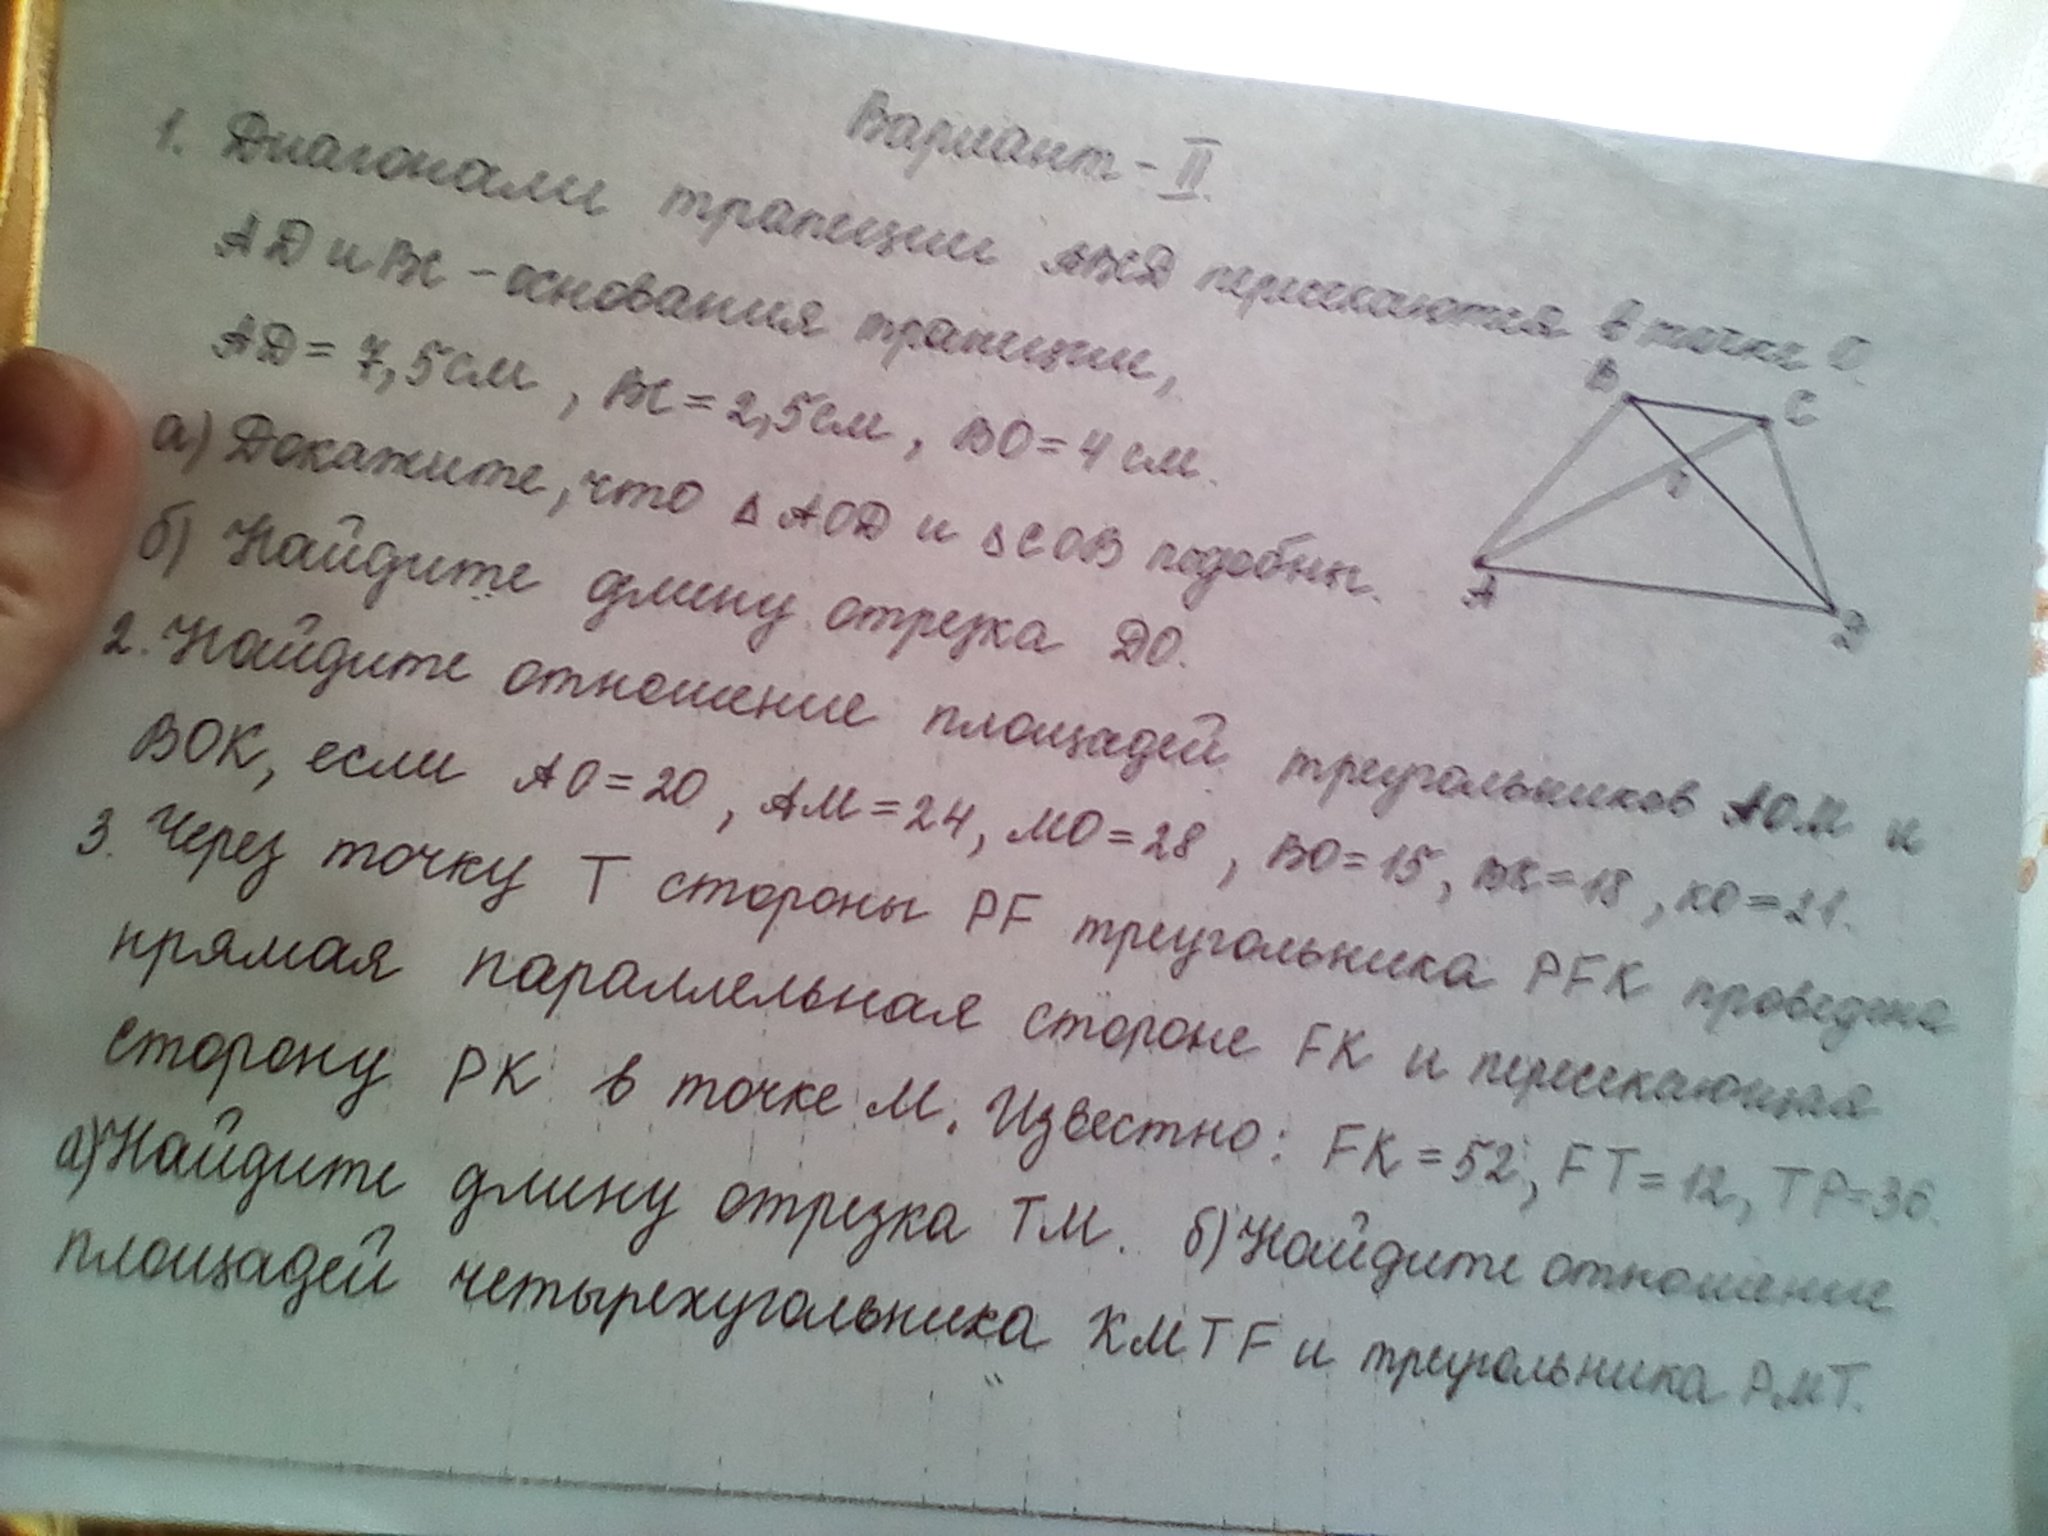 Вариант - II.
1. Диагонали трапеции ABCD пересекаются в точке O.
AD и BC - основания трапеции,
AD = 7,5 см, BC = 2,5 см, BO = 4 см.
а) Докажите, что △ AOD и △ COB подобны.
б) Найдите длину отрезка DO.
B
C
O
A
D
2. Найдите отношение площадей треугольников AOM и
BOK, если AO = 20, AM = 24, MO = 28, BO = 15, BK = 18, KO = 21.
3. Через точку T стороны PF треугольника PFK проведена
прямая параллельная стороне FK и пересекающая
сторону PK в точке M. Известно: FK = 52, FT = 12, TP = 36.
а) Найдите длину отрезка TM. б) Найдите отношение
площадей четырехугольника KMTF и треугольника PMT.